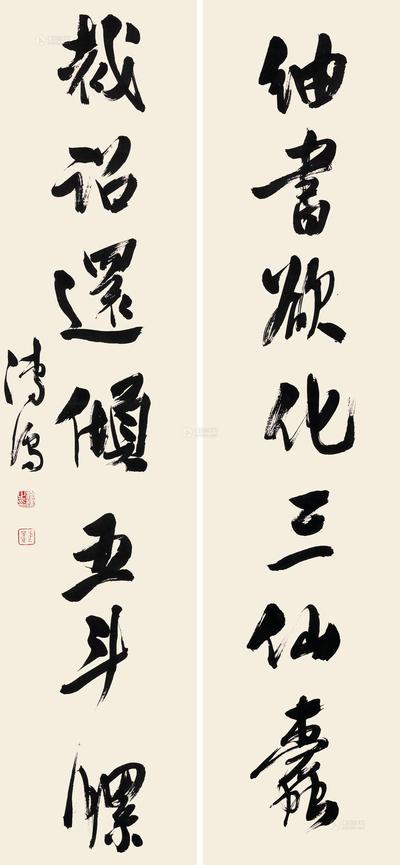 紬書欲化三仙蠹
裁詔還傾五斗螺